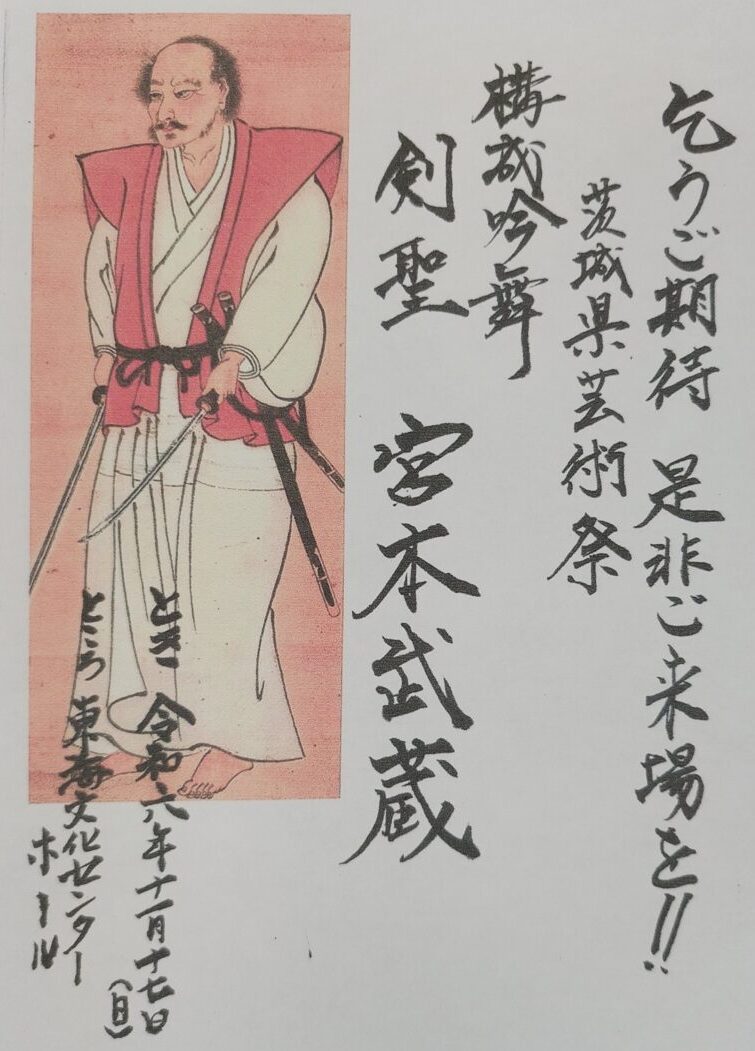 乞うご期待 是非ご来場を!!
茨城県芸術祭
構成吟舞
剣聖 宮本武蔵
とき 令和六年十一月十七日
(日)
ところ 東海文化センター
ホール